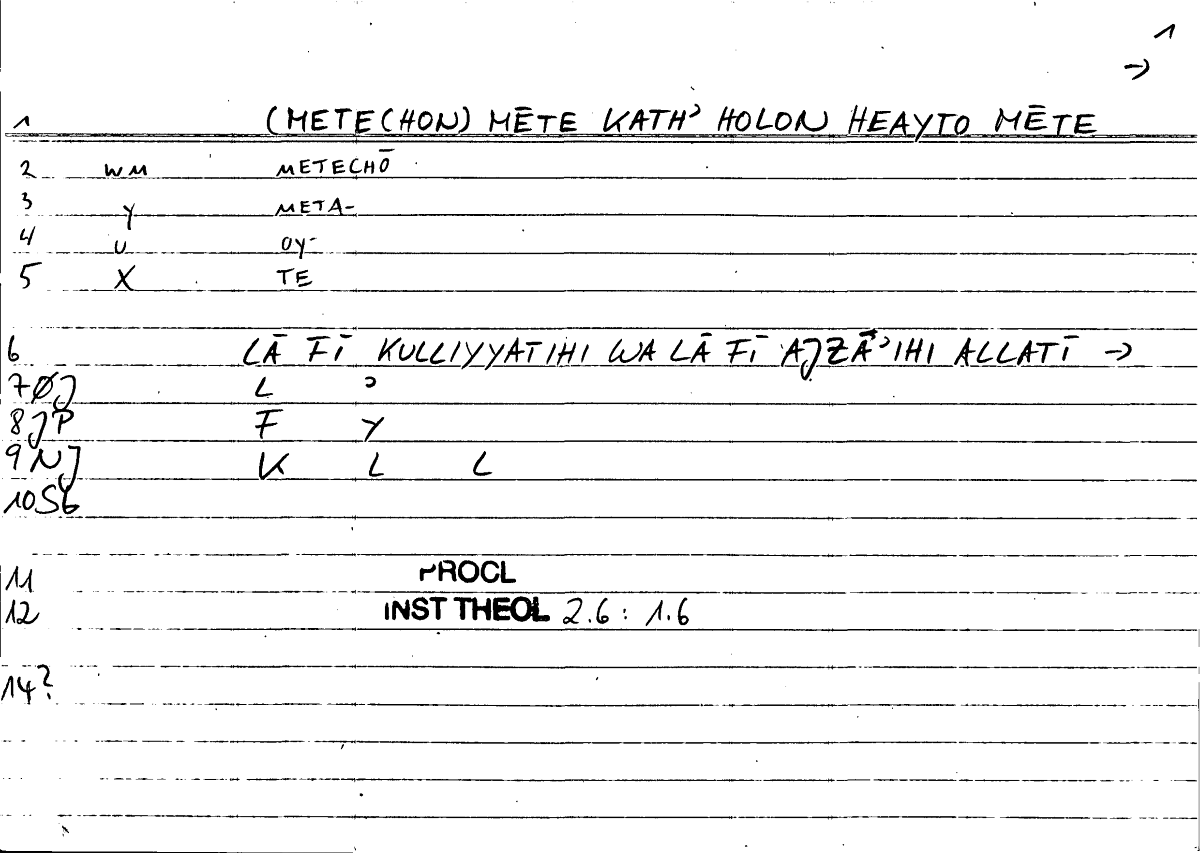 1
→
1 (METECHON) MĒTE KATH' HOLON HEAYTO MĒTE
2 WM METECHŌ
3 Y META-
4 U OY-
5 X TE
6 LĀ FĪ KULLIYYATIHI WA LĀ FĪ AJZĀ'IHI ALLATĪ →
7ØJ L ʾ
8JP F Y
9NJ K L L
10SB
11 PROCL
12 INST THEOL 2.6 : 1.6
14?